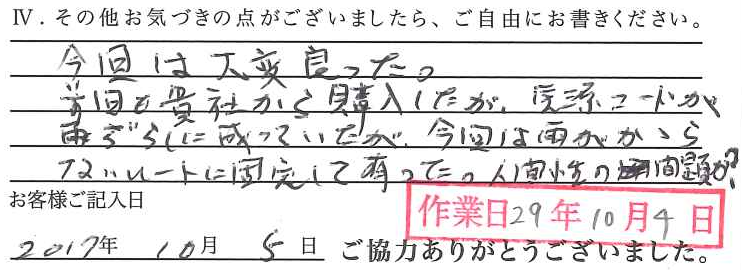 Ⅳ．その他お気づきの点がございましたら、ご自由にお書きください。
今回は大変良った。
前回も貴社から購入したが、電源コードが
雨ざらしに成っていたが、今回は雨がかゝら
ないルートに固定して有った。人間性の問題か?
お客様ご記入日
作業日29年10月4日
2017年 10月 5日 ご協力ありがとうございました。